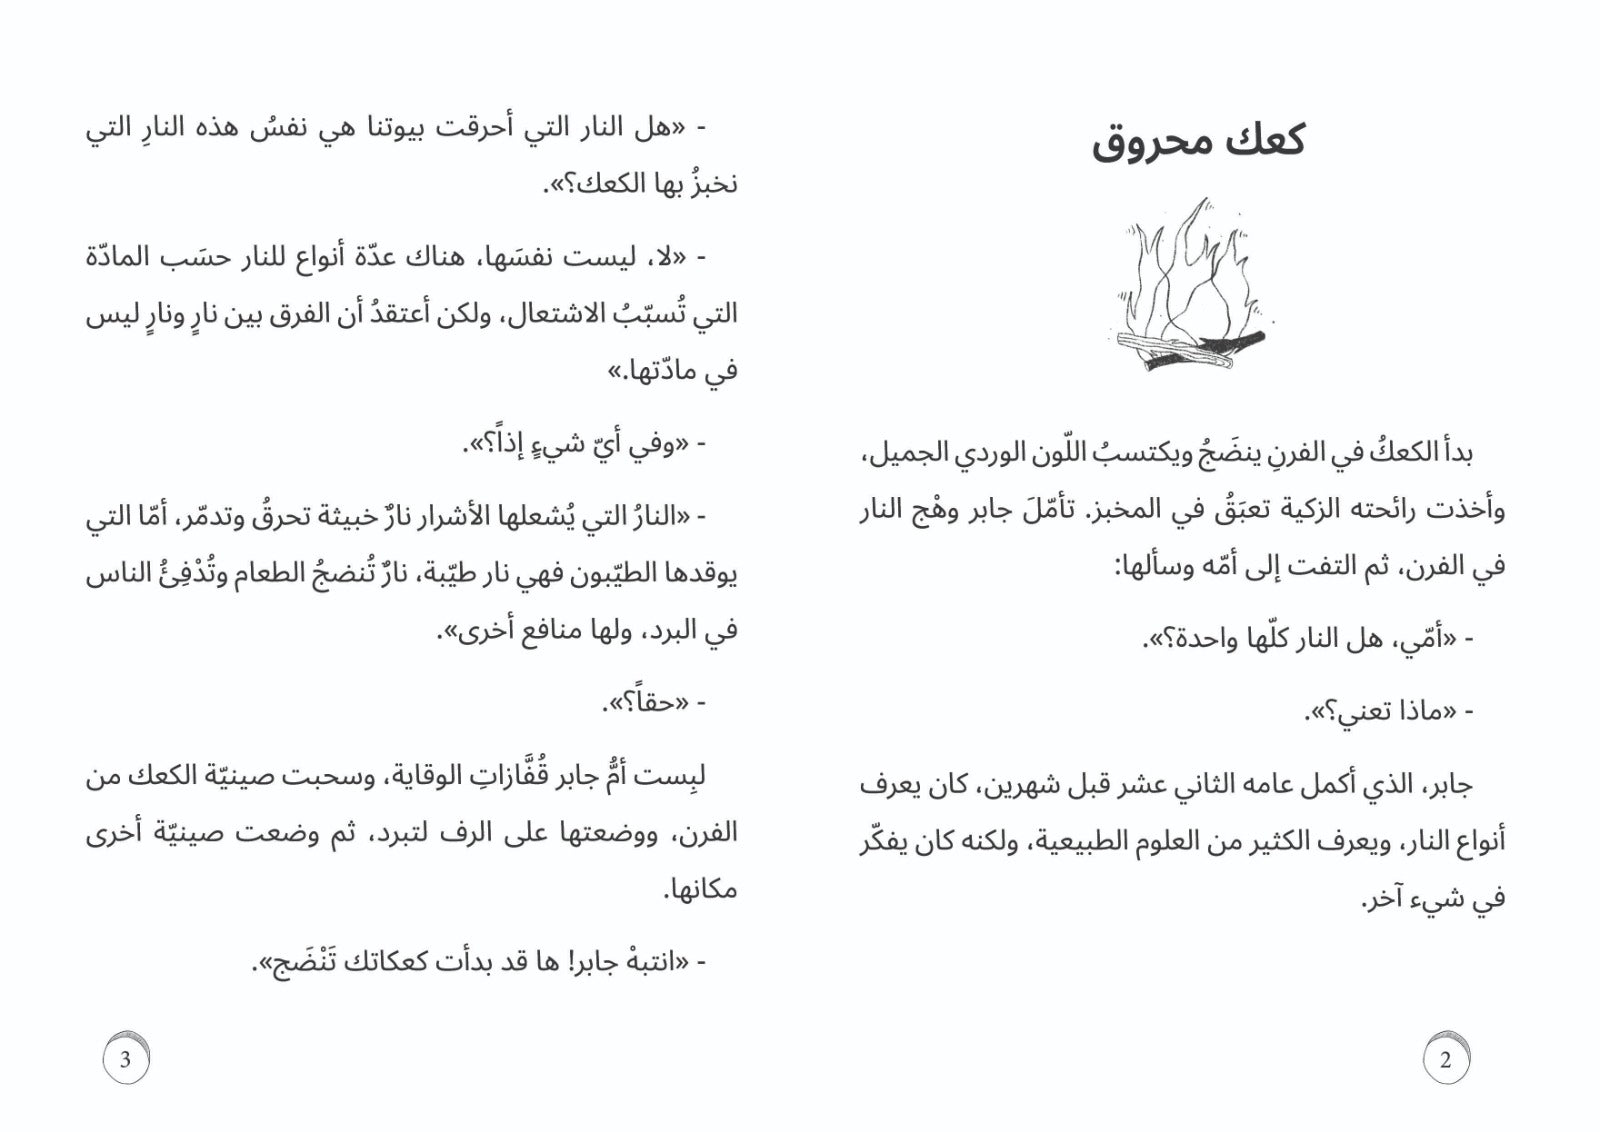 كعك محروق
بدأ الكعكُ في الفرنِ ينضَجُ ويكتسبُ اللّون الوردي الجميل،
وأخذت رائحته الزكية تعبَقُ في المخبز. تأمّلَ جابر وهْج النار
في الفرن، ثم التفت إلى أمّه وسألها:
- «أمّي، هل النار كلّها واحدة؟».
- «ماذا تعني؟».
جابر، الذي أكمل عامه الثاني عشر قبل شهرين، كان يعرف
أنواع النار، ويعرف الكثير من العلوم الطبيعية، ولكنه كان يفكّر
في شيء آخر.
2
- «هل النار التي أحرقت بيوتنا هي نفسُ هذه النارِ التي
نخبزُ بها الكعك؟».
- «لا، ليست نفسَها، هناك عدّة أنواع للنار حسَب المادّة
التي تُسبّبُ الاشتعال، ولكن أعتقدُ أن الفرق بين نارٍ ونارٍ ليس
في مادّتها.»
- «وفي أيّ شيءٍ إذاً؟».
- «النارُ التي يُشعلها الأشرار نارٌ خبيثة تحرقُ وتدمّر، أمّا التي
يوقدها الطيّبون فهي نار طيّبة، نارٌ تُنضجُ الطعام وتُدْفِئُ الناس
في البرد، ولها منافع أخرى».
- «حقاً؟».
لبِست أمُّ جابر قُفَّازاتِ الوقاية، وسحبت صينيّة الكعك من
الفرن، ووضعتها على الرف لتبرد، ثم وضعت صينيّة أخرى
مكانها.
- «انتبهْ جابر! ها قد بدأت كعكاتك تَنْضَج».
3